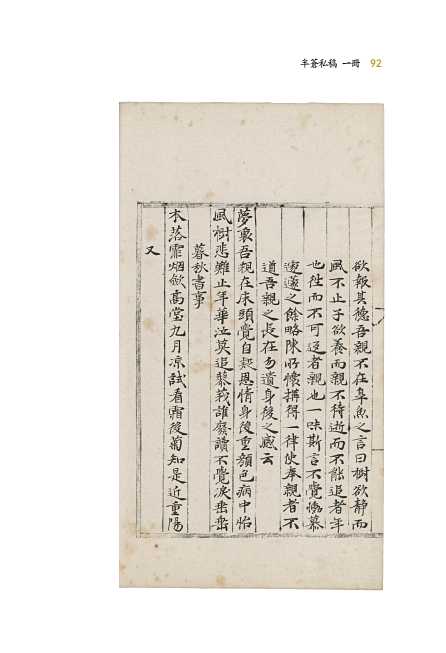 半蒼私稿 一冊 92
欲報其德吾親不在皐魚之言曰樹欲静而
風不止子欲養而親不待逝而不能追者年
也徃而不可返者親也一味斯言不覺慟慕
遑遑之餘略陳所懷搆得一律使奉親者不
道吾親之長在勿遺身後之慼云
夢裏吾親在床頭覺自疑恩情身後重顔色病中怡
風樹悲難止年華泣莫追蓼莪誰廢讀不覺淚垂垂
暮秋書事
木落霏烟斂高堂九月凉試看霜後菊知是近重陽
又